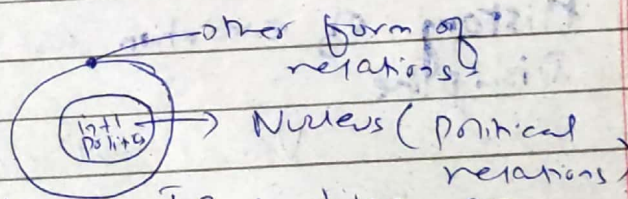 other form of
relations.
intl
politics
Nucleus (political
relations)